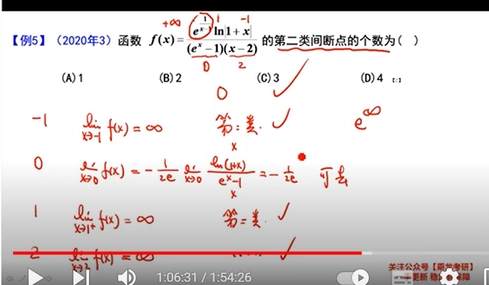 +∞ 1 -1
【例5】(2020年3) 函数 f(x)= e^{\frac{1}{x-1}} ln|1+x| / (e^x-1)(x-2) 的第二类间断点的个数为( )
0 2
(A) 1 (B) 2 (C) 3 (D) 4
0
-1 lim x→-1 f(x) = ∞ 第二类. ✓ e^∞
0 lim x→0 f(x) = -\frac{1}{2e} lim x→0 \frac{ln(1+x)}{e^x-1} = -\frac{1}{2e} 可去
1 lim x→1+ f(x) = ∞ 第二类. ✓
2 lim x→2 f(x) = ∞ ✓
1:06:31 / 1:54:26
关注公众号【